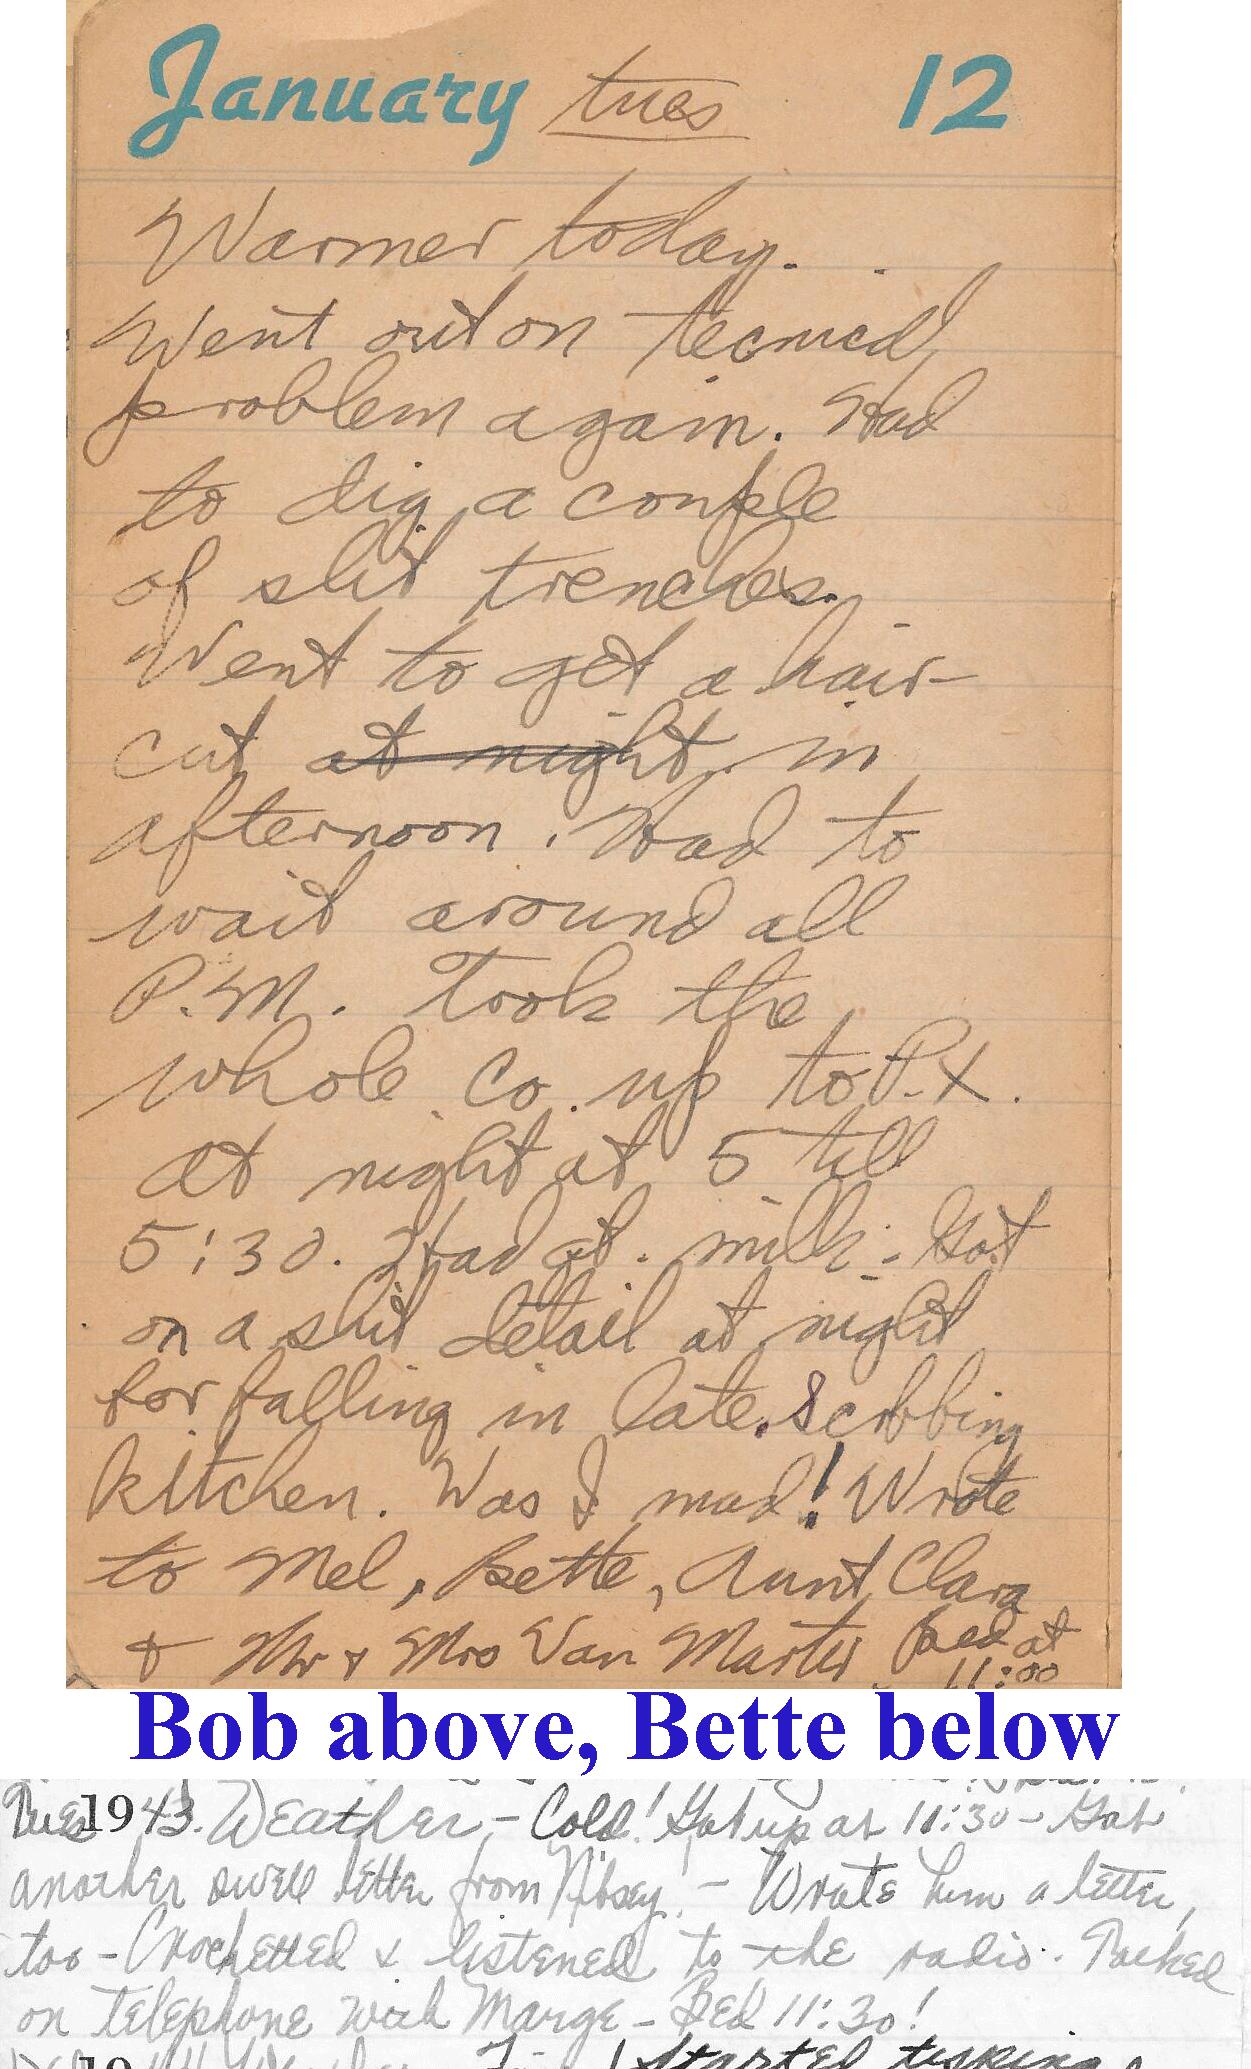 January tues 12
Warmer today.
Went out on
problem again. Had
to dig a couple
of slit trenches.
Went to get a hair-
cut at night. in
afternoon. Had to
wait around all
P.M. Took the
whole Co. up to P.X.
at night at 5 till
5:30. Had qt. milk - Got
on a shit detail at night
for falling in late. Scrbbing
kitchen. Was I mad! Wrote
to Mel, Bette, Aunt Clara
& Mr & Mrs Van Marter Bed at
11:00
Bob above, Bette below
Tues 1943. Weather - Cold! Got up at 11:30 - Got
another swell letter from - Wrote him a letter,
too - Crochetted & listened to the radio. Talked
on telephone with Marge - Bed 11:30!
19 Started